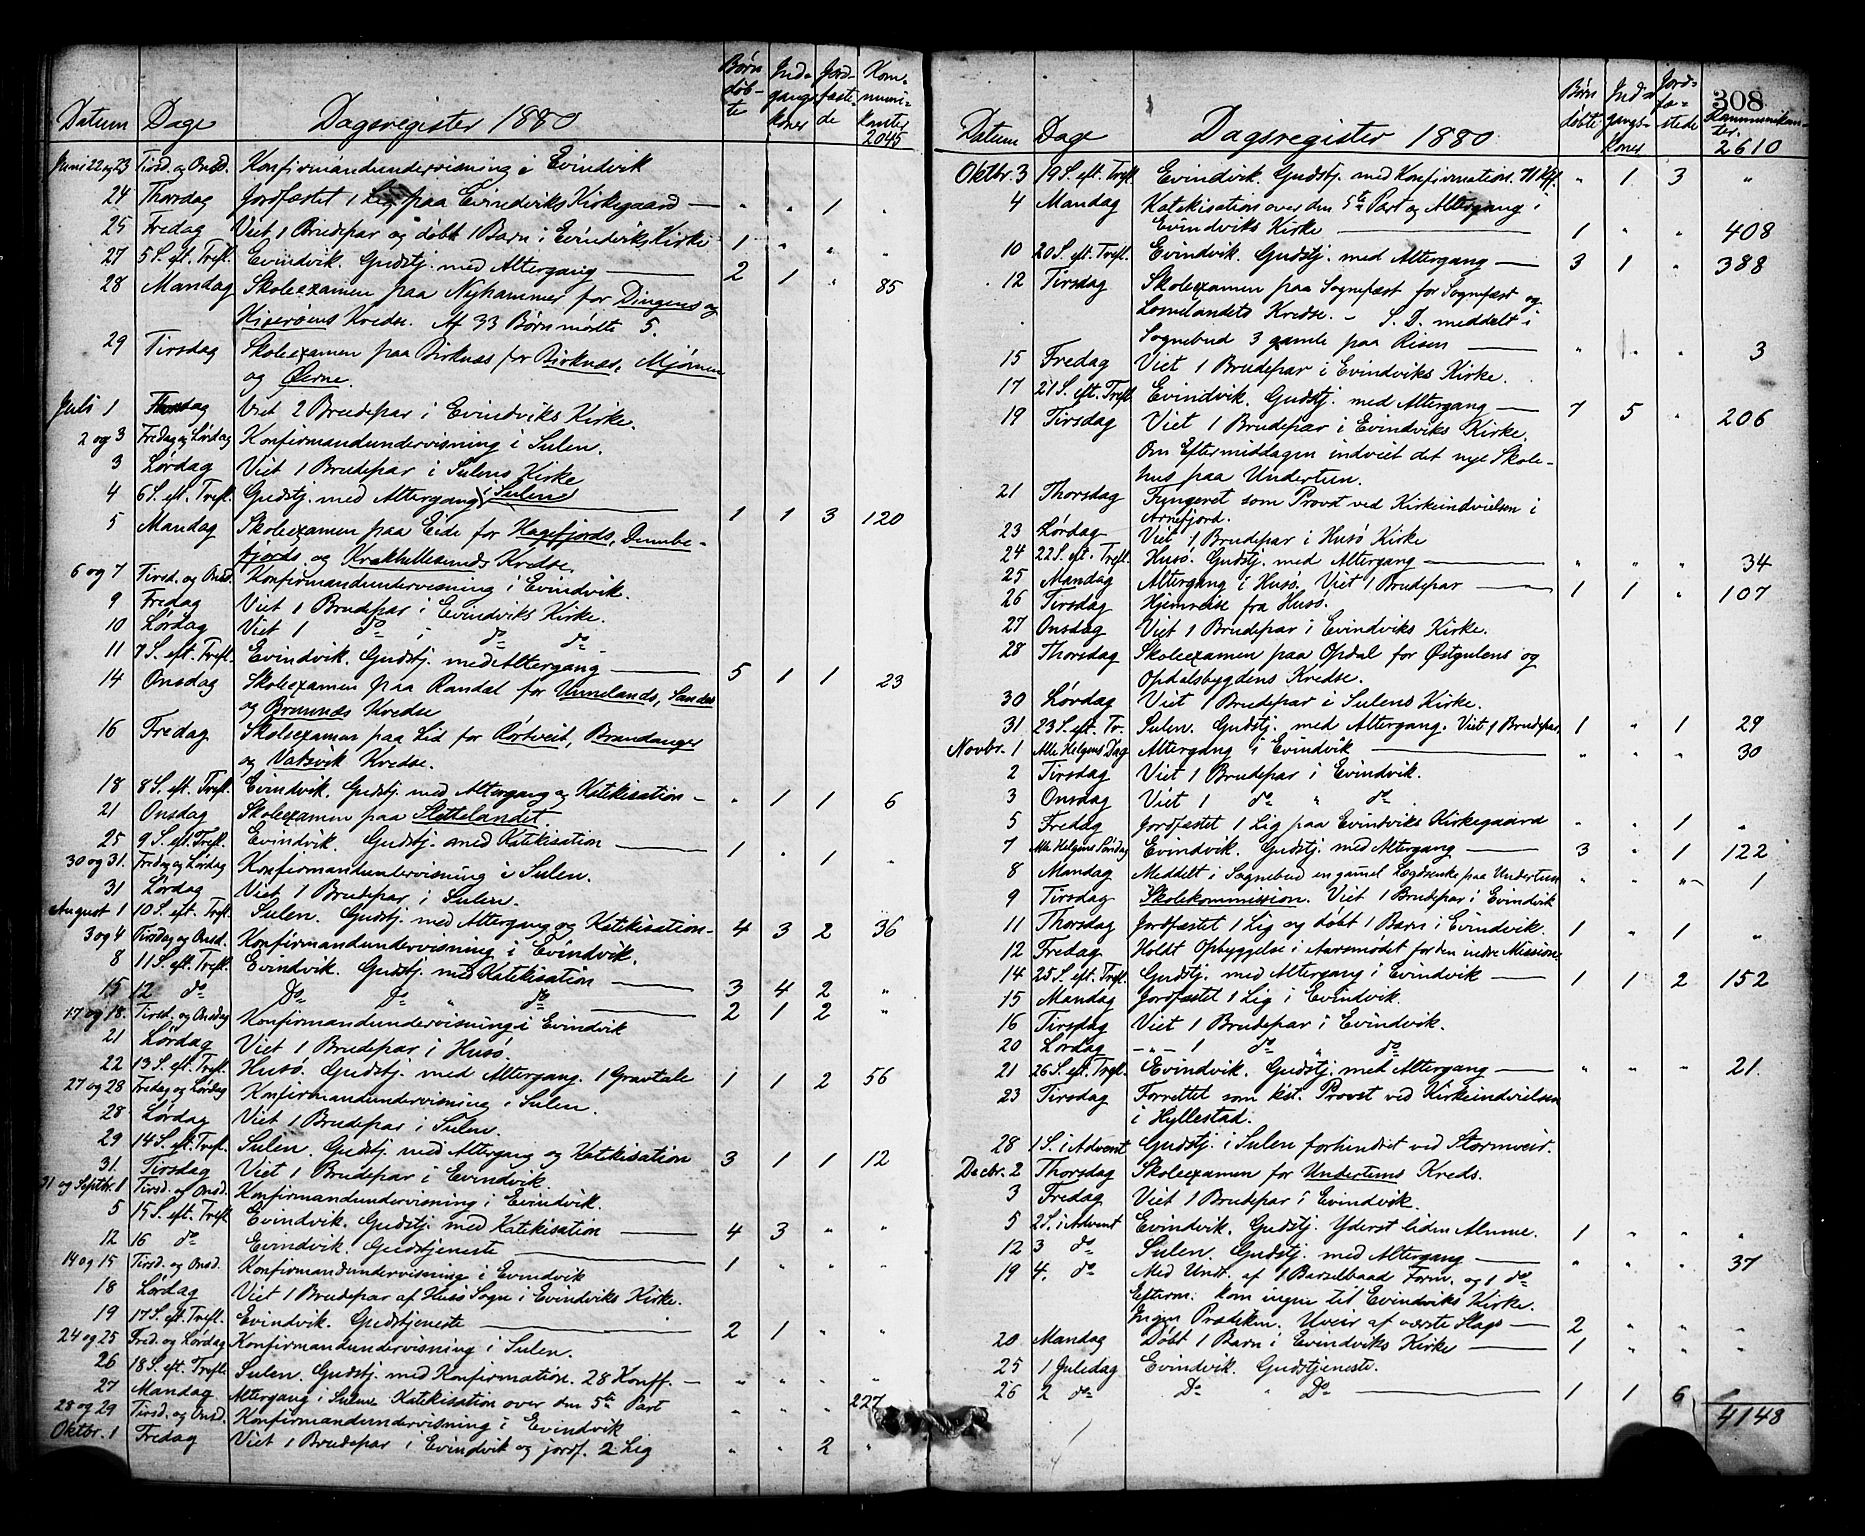 Datum Dage Dagsregister 1880 Børn døb-te Ind-gangs-koner Jord-faste-de Kom-muni-kanter 2045
Juni 22 og 23 Tirsd. og Onsd. Konfirmandundervisning i Evindvik
24 Thorsdag Jordfæstet 1 Lig paa Evindviks Kirkegaard — " " 1 "
25 Fredag Viet 1 Brudepar og døbt 1 Barn i Evindviks Kirke 1 " " "
27 5 S. eft. Trefl. Evindvik. Gudstj. med Altergang — 2 1 " 85
28 Mandag Skoleexamen paa Nyhammer for Dingens og
Hiserøens Kredse. Af 33 Børn mødte 5.
29 Tirsdag Skoleexamen paa Birknæs for Birknæs, Mjømen
og Øerne.
Juli 1 Thorsdag Viet 2 Brudepar i Evindviks Kirke.
2 og 3 Fredag og Lørdag Konfirmandundervisning i Sulen.
3 Lørdag Viet 1 Brudepar i Sulens Kirke
4 6 S. eft. Trefl. Gudstj. med Altergang i Sulen — 1 1 3 120
5 Mandag Skoleexamen paa Eide for Hagefjords, Dumbe-
fjords og Krakhellesunds Kredse.
6 og 7 Tirsd. og Onsd. Konfirmandundervisning i Evindvik.
9 Fredag Viet 1 Brudepar i Evindviks Kirke.
10 Lørdag Viet 1 do i do do
11 7 S. eft. Trefl. Evindvik. Gudstj. med Altergang — 5 1 1 23
14 Onsdag Skoleexamen paa Randal for Unnelands, Sandes
og Brunnæs Kredse
16 Fredag Skoleexamen paa Lid for Rørtveit, Brandanger
og Vatsvik Kredse.
18 8 S. eft. Trefl. Evindvik. Gudstj. med Altergang og Katekisation — " 1 1 6
21 Onsdag Skoleexamen paa Slettelandet.
25 9 S. eft. Trefl. Evindvik. Gudstj. med Katekisation — 1 " 1 "
30 og 31. Fredag og Lørdag Konfirmandundervisning i Sulen.
31 Lørdag Viet 1 Brudepar i Sulen.
August 1 10 S. eft. Trefl. Sulen. Gudstj. med Altergang og Katekisation — 4 3 2 36
3 og 4 Tirsdag og Onsd. Konfirmandundervisning i Evindvik.
8 11 S. eft. Trefl. Evindvik. Gudstj. med Katekisation — 3 4 2 "
15 12 do Do Do " do 2 1 2 "
17 og 18. Tirsd. og Onsdag Konfirmandundervisning i Evindvik
21 Lørdag Viet 1 Brudepar i Husø.
22 13 S. eft. Trefl. Husø. Gudstj. med Altergang. 1 Gravtale 1 1 2 56
27 og 28 Fredag og Lørdag Konfirmandundervisning i Sulen.
28 Lørdag Viet 1 Brudepar i Sulen.
29 14 S. eft. Trefl. Sulen. Gudstj. med Altergang og Katekisation 3 1 1 12
31. Tirsdag Viet 1 Brudepar i Evindvik.
31 og Septbr. 1 Tirsd. og Onsd. Konfirmandundervisning i Evindvik.
5 15 S. eft. Trefl. Evindvik. Gudstj. med Katekisation — 4 3 " "
12 16 do Evindvik. Gudstjeneste — 1 " " "
14 og 15 Tirsd. og Onsd. Konfirmandundervisning i Evindvik
18 Lørdag Viet 1 Brudepar af Husø Sogn i Evindviks Kirke.
19 17 S. eft. Trefl. Evindvik. Gudstjeneste — 2 1 " "
24 og 25 Fred. og Lørdag Konfirmandundervisning i Sulen.
26 18 S. eft. Trefl. Sulen. Gudstj. med Konfirmation. 28 Konff. — " " " "
27 Mandag Altergang i Sulen Katekisation over den 5te Part " " " 227
28 og 29 Tirsd. og Onsd. Konfirmandundervisning i Evindvik
Oktbr. 1 Fredag Viet 1 Brudepar i Evindvik og jordf. 2 Lig " " 2 "
308
Datum Dage Dagsregister 1880 Børn døbte Ind-gangs-koner Jord-fæ-stede Kommunikan-ter. 2610
Oktbr. 3 19 S. eft. Trefl. Evindvik. Gudstj. med Konfirmation. 71 Kff. " 1 3 "
4 Mandag Katekisation over den 5te Part og Altergang i
Evindviks Kirke — 1 " " 408
10 20 S. eft. Trefl. Evindvik. Gudstj. med Altergang — 3 1 " 388
12 Tirsdag Skoleexamen paa Sognefæst for Sognefæst og
Losnelandets Kredse. – S. D. meddelt i
Sognebud 3 gamle paa Risen — " " " 3
15 Fredag Viet 1 Brudepar i Evindviks Kirke.
17 21 S. eft. Trefl. Evindvik. Gudstj. med Altergang — 7 5 " 206
19 Tirsdag Viet 1 Brudepar i Evindviks Kirke.
Om Eftermiddagen indviet det nye Skole-
hus paa Undertun.
21 Thorsdag Fungeret som Provst ved Kirkeindvielsen i
Arnefjord.
23 Lørdag Viet 1 Brudepar i Husø Kirke
24 22 S. eft. Trefl. Husø. Gudstj. med Altergang — " " " 34
25 Mandag Altergang i Husø. Viet 1 Brudepar — 1 1 " 107
26 Tirsdag Hjemreise fra Husø.
27 Onsdag Viet 1 Brudepar i Evindviks Kirke.
28 Thorsdag Skoleexamen paa Opdal for Østgulens og
Opdalsbygdens Kredse.
30 Lørdag Viet 1 Brudepar i Sulens Kirke.
31 23 S. eft. Tr. Sulen. Gudstj. med Altergang. Viet 1 Brudepar. 1 " 1 29
Novbr. 1 Alle Helgens Dag Altergang i Evindvik — " " " 30
2 Tirsdag Viet 1 Brudepar i Evindvik.
3 Onsdag Viet 1 do " do
5 Fredag Jordfæstet 1 Lig paa Evindviks Kirkegaard " " 1 "
7 Alle Helgens Søndag Evindvik. Gudstj. med Altergang — 3 " 1 122
8 Mandag Meddelt i Sognebud en gammel Lægdsenke paa Undertun " " " 1
9 Tirsdag Skolekommission. Viet 1 Brudepar i Evindvik
11 Thorsdag Jordfæstet 1 Lig og døbt 1 Barn i Evindvik. 1 " 1 "
12 Fredag Holdt Opbyggelse i Aarsmødet for den indre Mission.
14 25 S. eft. Trefl. Gudstj. med Altergang i Evindvik — 1 1 2 152
15 Mandag Jordfæstet 1 Lig i Evindvik.
16 Tirsdag Viet 1 Brudepar i Evindvik.
20 Lørdag – " – 1 do " do
21 26 S. eft. Trefl. Evindvik. Gudstj. med Altergang — " " " 21.
23 Tirsdag Forrettet som kst. Provst ved Kirkeindvielsen
i Hyllestad.
28 1 S. i Advent Gudstj. i Sulen forhindret ved Stormveir.
Decbr. 2 Thorsdag Skoleexamen for Undertuns Kreds.
3 Fredag Viet 1 Brudepar i Evindvik.
5 2 S. i Advent Evindvik. Gudstj. Yderst liden Almue. 1 " " "
12 3 do Sulen. Gudstj. med Altergang — " " " 37
19 4. do Med Undt. af 1 Barselbaad Form. og 1 do
Efterm. kom ingen til Evindviks Kirke.
Ingen Prædiken. Uveir af værste Slags — 2 " " "
20 Mandag Døbt 1 Barn i Evindviks Kirke — 1 " " "
25 1 Juledag Evindvik. Gudstjeneste.
26 2 do Do " Do — 1 1 6 "
4148